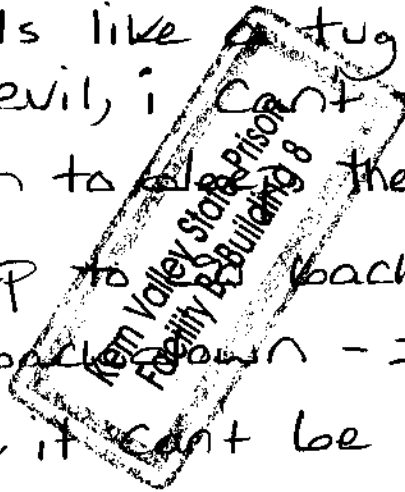 ls like a tug
evil, i can't
n to the
p to go back
back down -
it can't be
Kern Valley State Prison
Facility B-Building 8